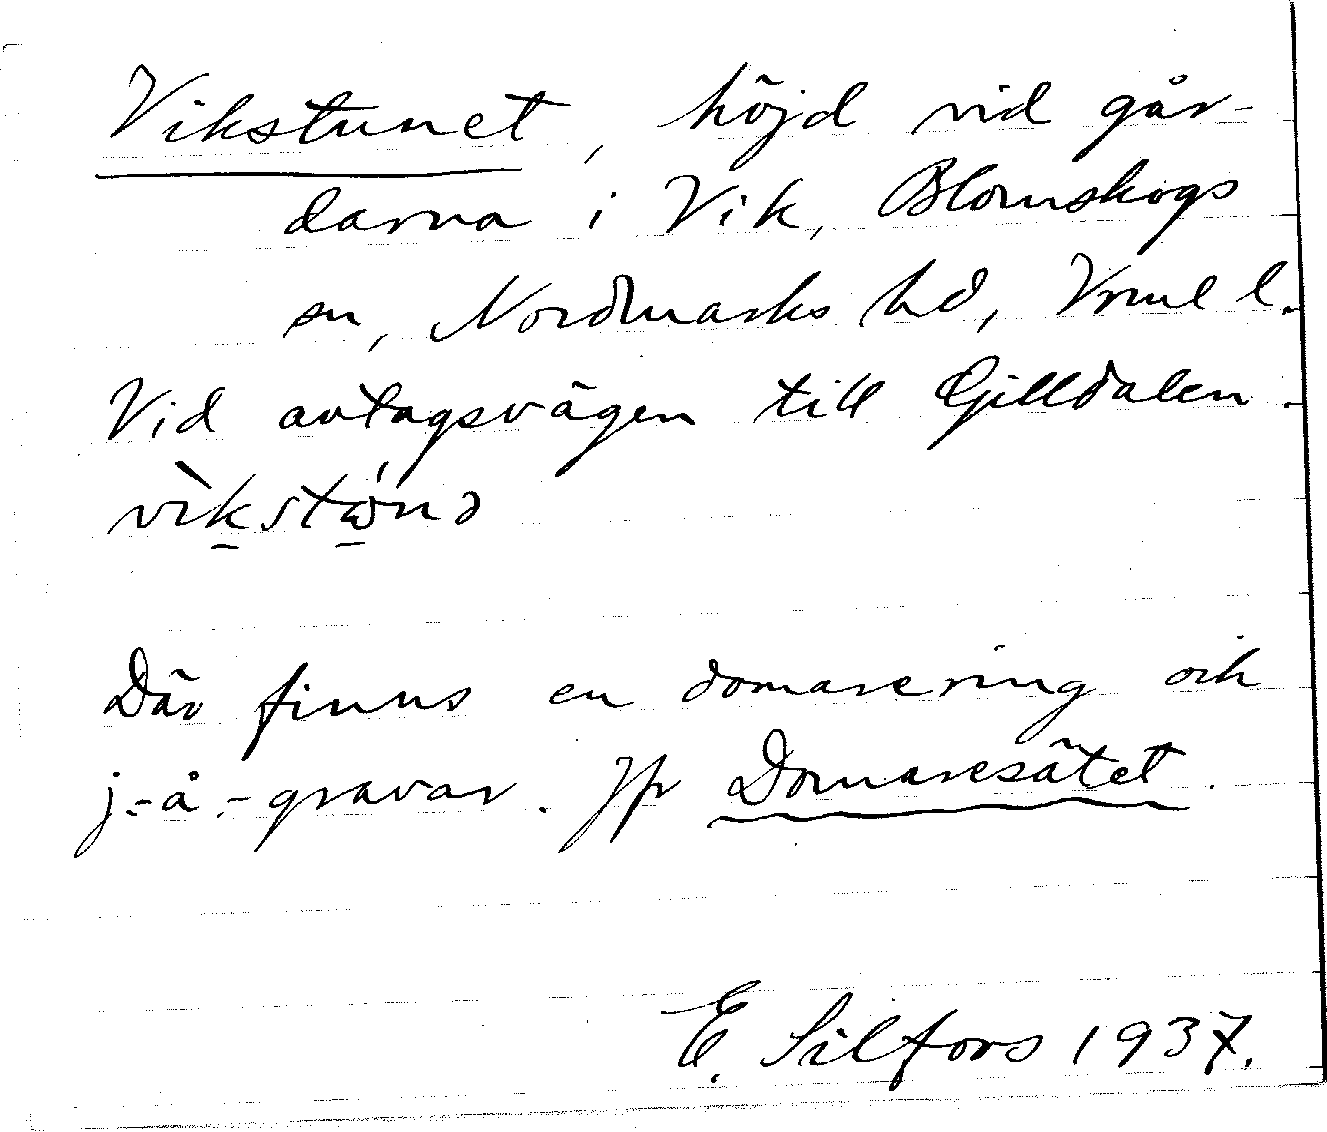 Vikstunet, höjd vid går-
darna i Vik, Blomskogs
sn, Nordmarks hd, Vrml l.
Vid avtagsvägen till Gilldalen.
vìkstώnə
Där finns en domarering och
j.-å.-gravar. Jfr Domaresätet.
E. Silfors 1937.